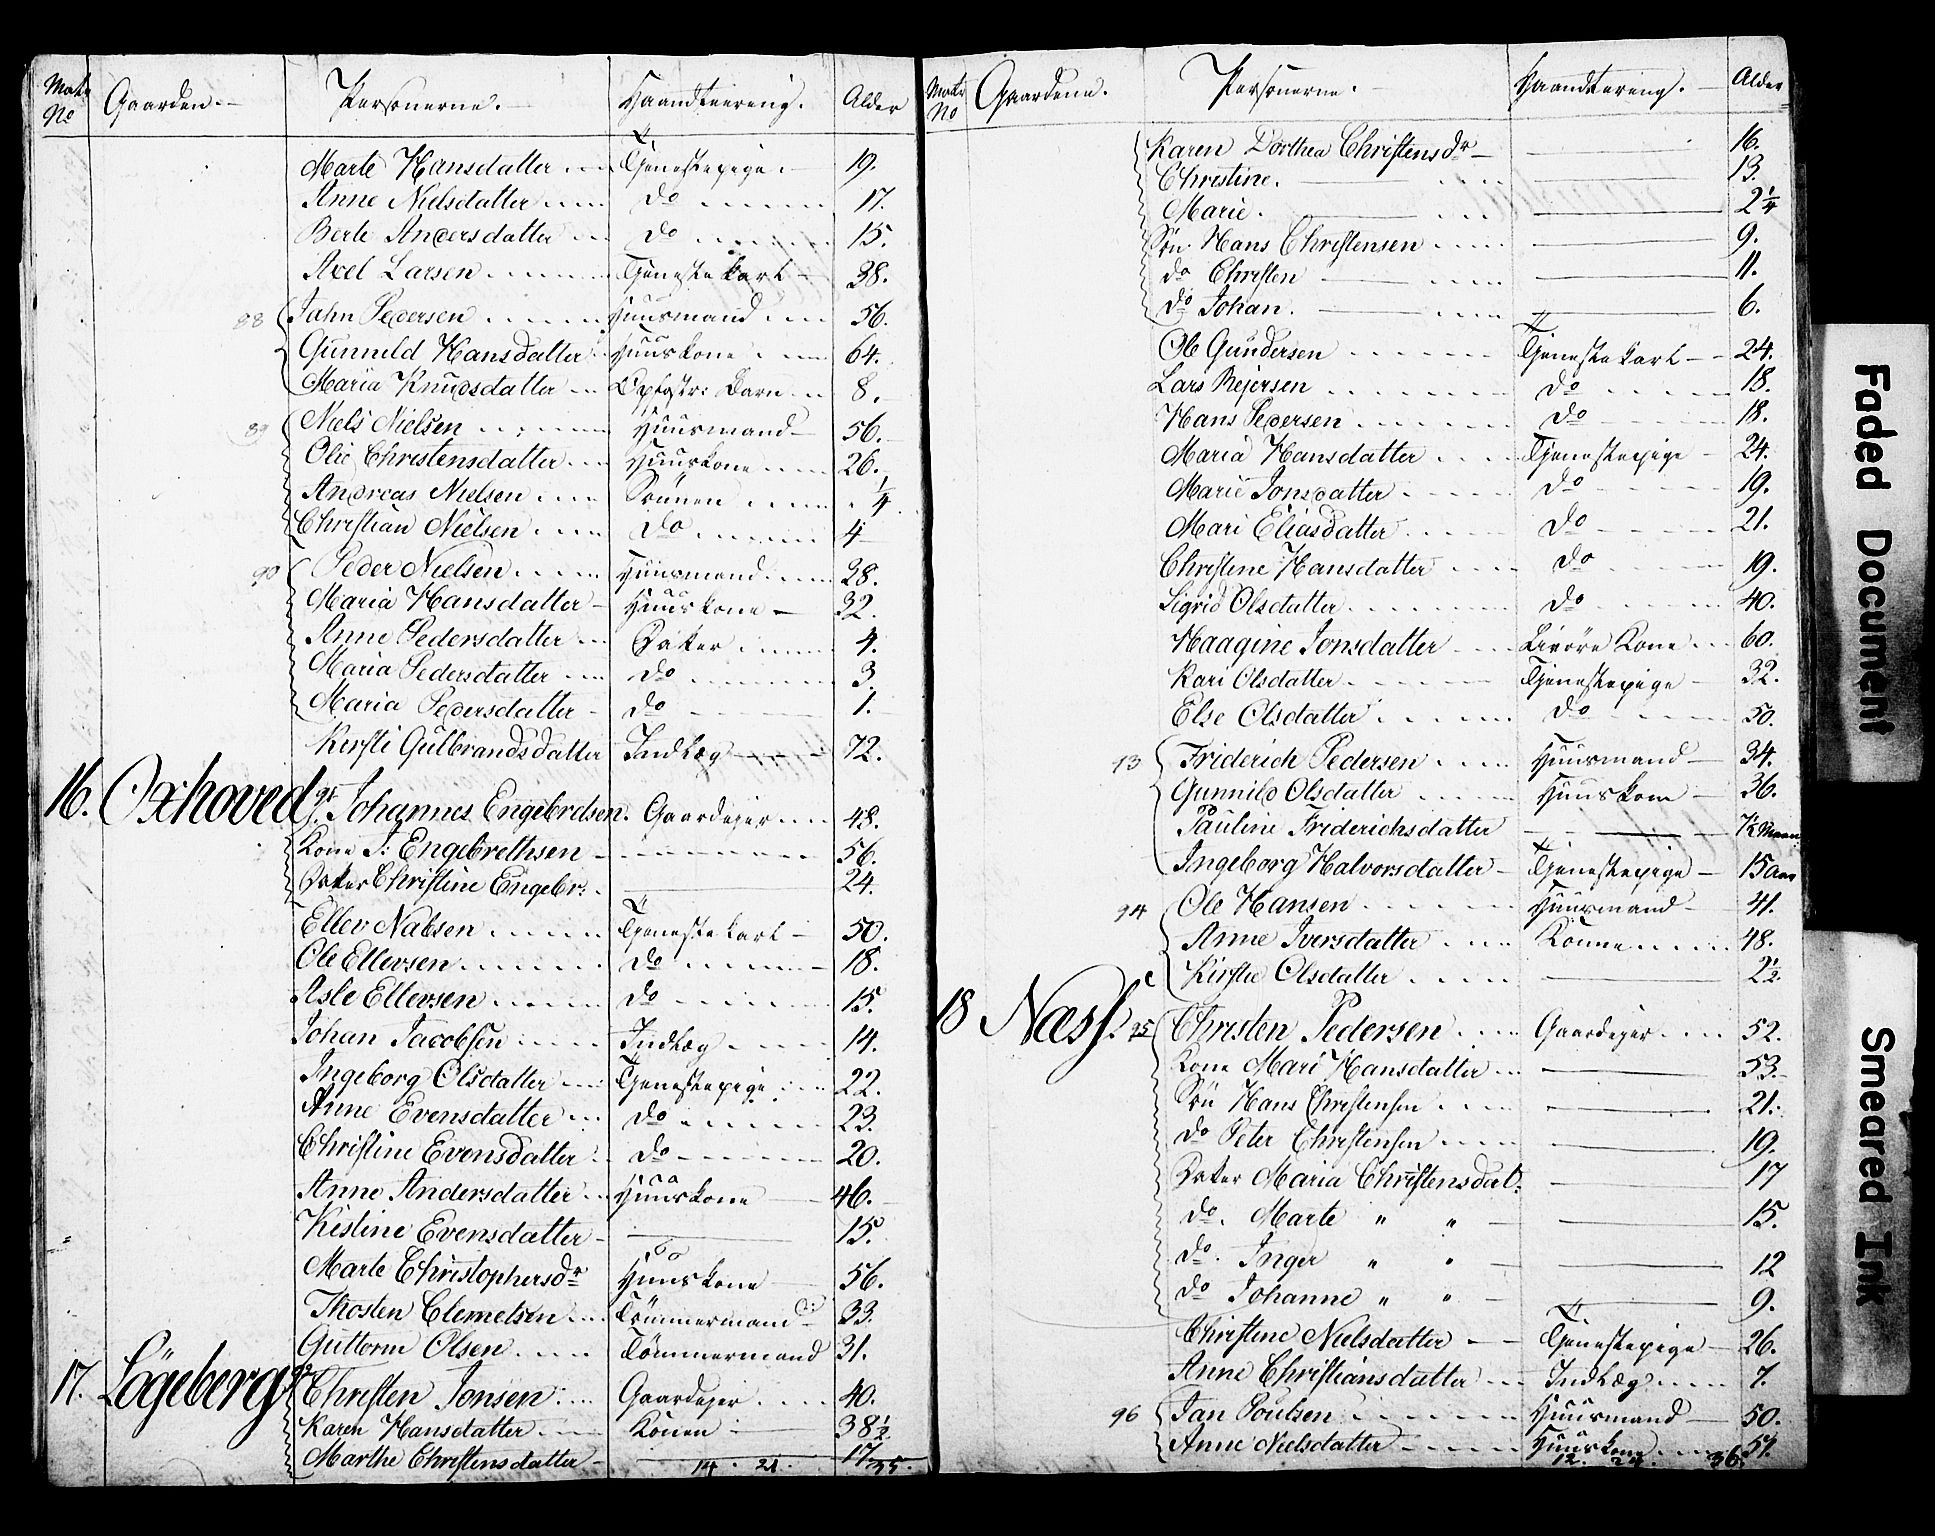 Matr No Gaarden. Personerne. Haandteering. Alder
Marte Hansdatter Tjenestepige 19.
Anne Nielsdatter do 17.
Berte Andersdatter do 15.
Axel Larsen Tjenestekarl 38.
88 Jahn Pedersen Huusmand 56.
Gunneld Hansdatter Huuskone 64.
Maria Knudsdatter Opfostr: Barn 8.
89 Niels Nielsen Huusmand 56.
Olie Christensdatter Huuskone 26.
Andreas Nielsen Sönnen 1/4
Christian Nielsen do 4
90 Peder Nielsen Huusmand 38.
Maria Hansdatter Huuskone 32.
Anne Pedersdatter Datter 4.
Maria Pedersdatter do 3.
Maria Pedersdatter do 1.
Kirsti Gulbrandsdatter Indlæg 72.
16. Oxhoved 91 Johannes Engebretsen. Gaardejer 48.
Kone J: Engebrethsen 56.
Datter Christine Engebr: 24.
Ellev Nalsen Tjenestekarl 50.
Ole Ellevsen do 18.
Asle Ellevsen do 15.
Johan Jacobsen Indlæg 14.
Ingeborg Olsdatter Tjenestepige 22.
Anne Evensdatter do 23.
Christine Evensdatter do 20.
Anne Andersdatter Huuskone 46.
Kistine Evensdatter 15.
Marte Christophersdr Huuskone 56.
Thosten Clemetsen Tömmermand 33.
Guttorm Olsen Tömmermand 31.
17. Lögeberg 92 Christen Jonsen Gaardejer 40.
Karen Hansdatter Konen 38 1/2
Marthe Christensdatter 17.
14. 21. 35.
Matr No Gaardene. Personerne. Haandtering. Alder
Karen Dorthea Christensdr 16.
Christine. 13.
Marie. 2 1/4
Sön Hans Christensen 9.
do Christen 11.
do Johan. 6.
Ole Gundersen Tjenestekarl 24.
Lars Rejersen do 18.
Hans Pedersen do 18.
Maria Hansdatter Tjenestepige 24.
Marie Jonsdatter do 19.
Mari Eliasdatter do 21.
Christine Hansdatter do 19.
Sigrid Olsdatter do 40.
Haagine Jonsdatter Livöre Kone 60.
Kari Olsdatter Tjenestepige 32.
Else Olsdatter do 50.
93 Friderich Pedersen Huusmand 34.
Gunnild Olsdatter Huuskone 36.
Pauline Friderichsdatter 7 1/2 Maan
Ingeborg Halvorsdatter Tjenestepige 15 Aar
94 Ole Hansen Huusmand 41.
Anne Iversdatter Konne 48.
Kirstie Olsdatter 2 1/2
18 Næss. 95 Christen Pedersen Gaardejer 52.
Kone Mari Hansdatter 53.
Sön Hans Christensen 21.
do Peter Christensen 19.
Datter Maria Christensdat: 17
do. Marte " " 15.
do. Inger " " 12
do Johanne " " 9.
Christine Nielsdatter Tjenestepige 26.
Anne Christiansdatter Indlæg 7.
96 Jan Poulsen Huusmand 50.
Anne Nielsdatter Huuskone 57.
12. 24. 36.
Faded Document
Smeared Ink